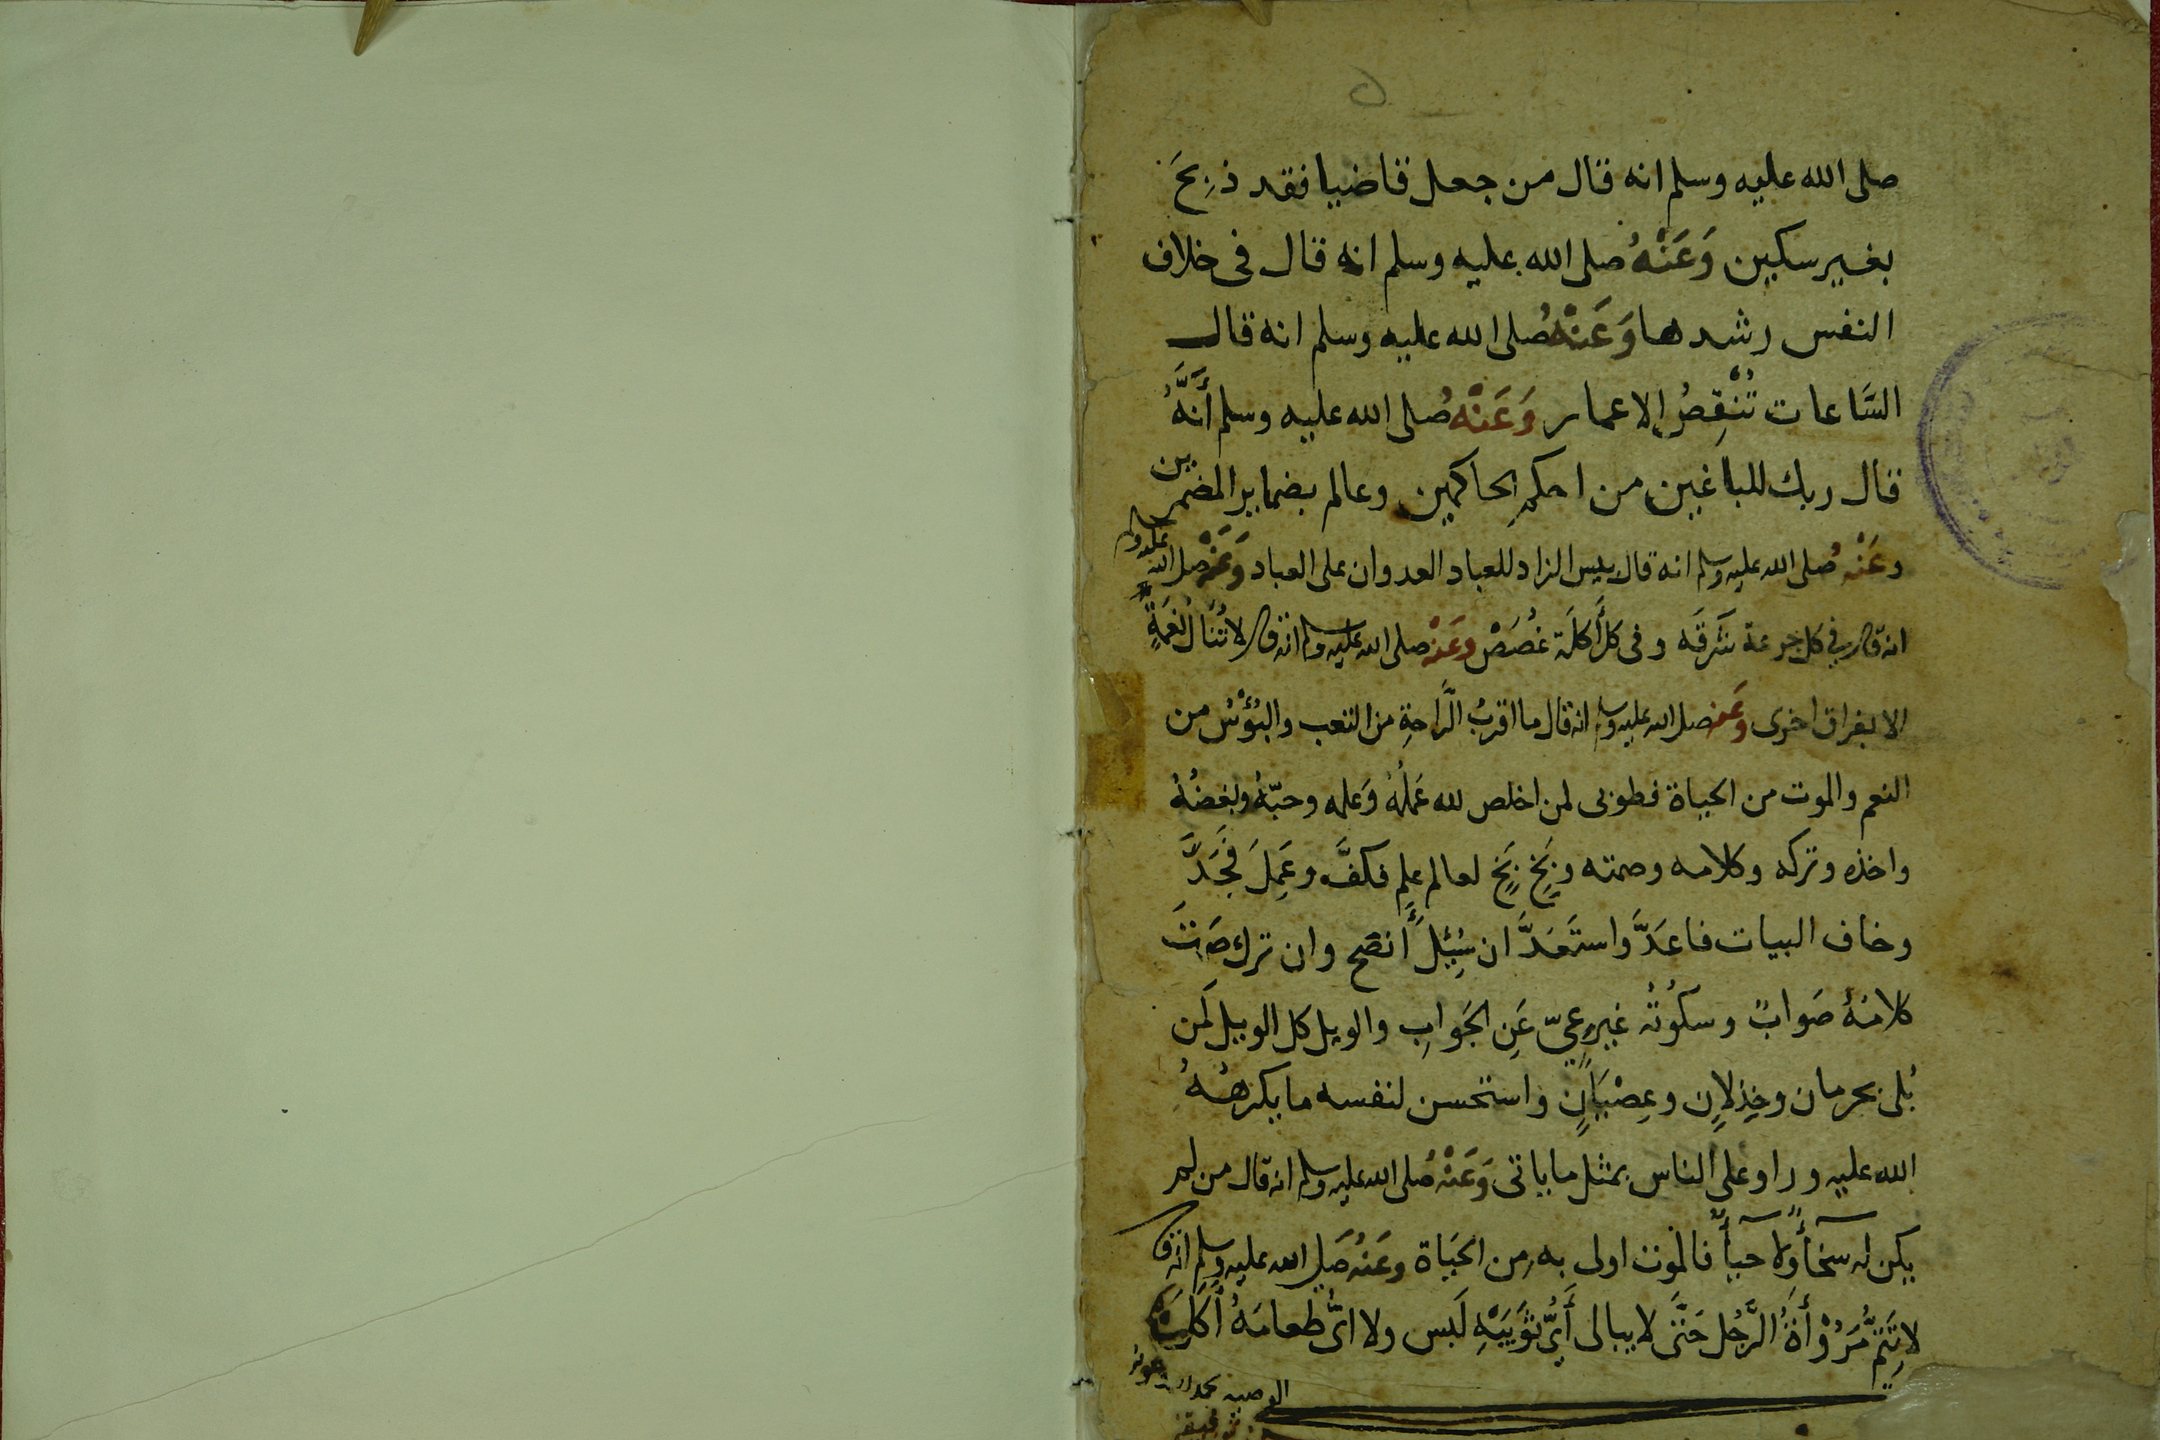 صلى الله عليه وسلم انه قال من جعل قاضيا فقد ذبِحَ
بغير سكين وَعَنْهُ صلى الله عليه وسلم انه قال فى خلاف
النفس رشدها وَعَنْهُ صلى الله عليه وسلم انه قال
السَّاعات تُنْقِصُ الاعمار وَعَنْهُ صلى الله عليه وسلم أَنَّهُ
قال ربك للباغين من احكمِ الحاكمين وعالم بضماير المضمرين
وعَنْهُ صلى الله عليه وسلم انه قال بيس الزاد للعباد العدوان على العباد وَعَنْهُ صلى الله عليه وسلم
انه قال فى كل جرعة شَرقَه وفى كل أَكلَة غُصَصْ وعَنْهُ صلى الله عليه وسلم انه قال لا تُنَال نُعمَةٍ
الا بفراق اخرى وعَنه صلى الله عليه وسلم انه قال ما اقربُ الرَّاحةِ من التعب والبُؤْسُ من
النعم والموت من الحياة فطوبى لمن اخلص لله عَمَلُهُ وَعلمه وحبّهُ وبغضُهُ
واخذه وتركه وكلامه وصمته وبَخٍ بَخٍ لعالم علم فكفَّ وعَمِلَ فَجَدَّ
وخاف البيات فاعَدَّ واستَعَدَّ ان سُئِلَ أنصح وان ترك صَمَتَ
كلامُهُ صَوابٌ وسكُوتُه غير عىّ عَنِ الجَوابِ والويل كل الويل لَمن
بُلى بحرمان وخِذلانٍ وعِصْيَانٍ واستحسن لنفسه ما يكرههُ
الله عليه و راو على الناس بمثل ما ياتى وَعَنْهُ صلى الله عليه وسلم انه قال من لم
يكن له سخآءٌ ولا حيآءٌ فالموت اولى به من الحَيَاة وعَنْهُ صَلى الله عليه وسلم انه قال
لا تَتِمُّ مُرُوْأَةُ الرَّجُل حَتَّى لا يبالى أَىُّ ثَوْبَيْهِ لَبس ولا اىُّ طعامَهُ أَكَلَ
الوصية بحمد الله وعونه